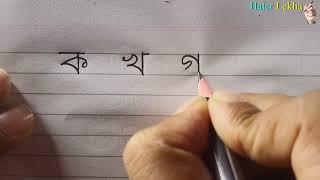 Hater Lekha
ক খ গ